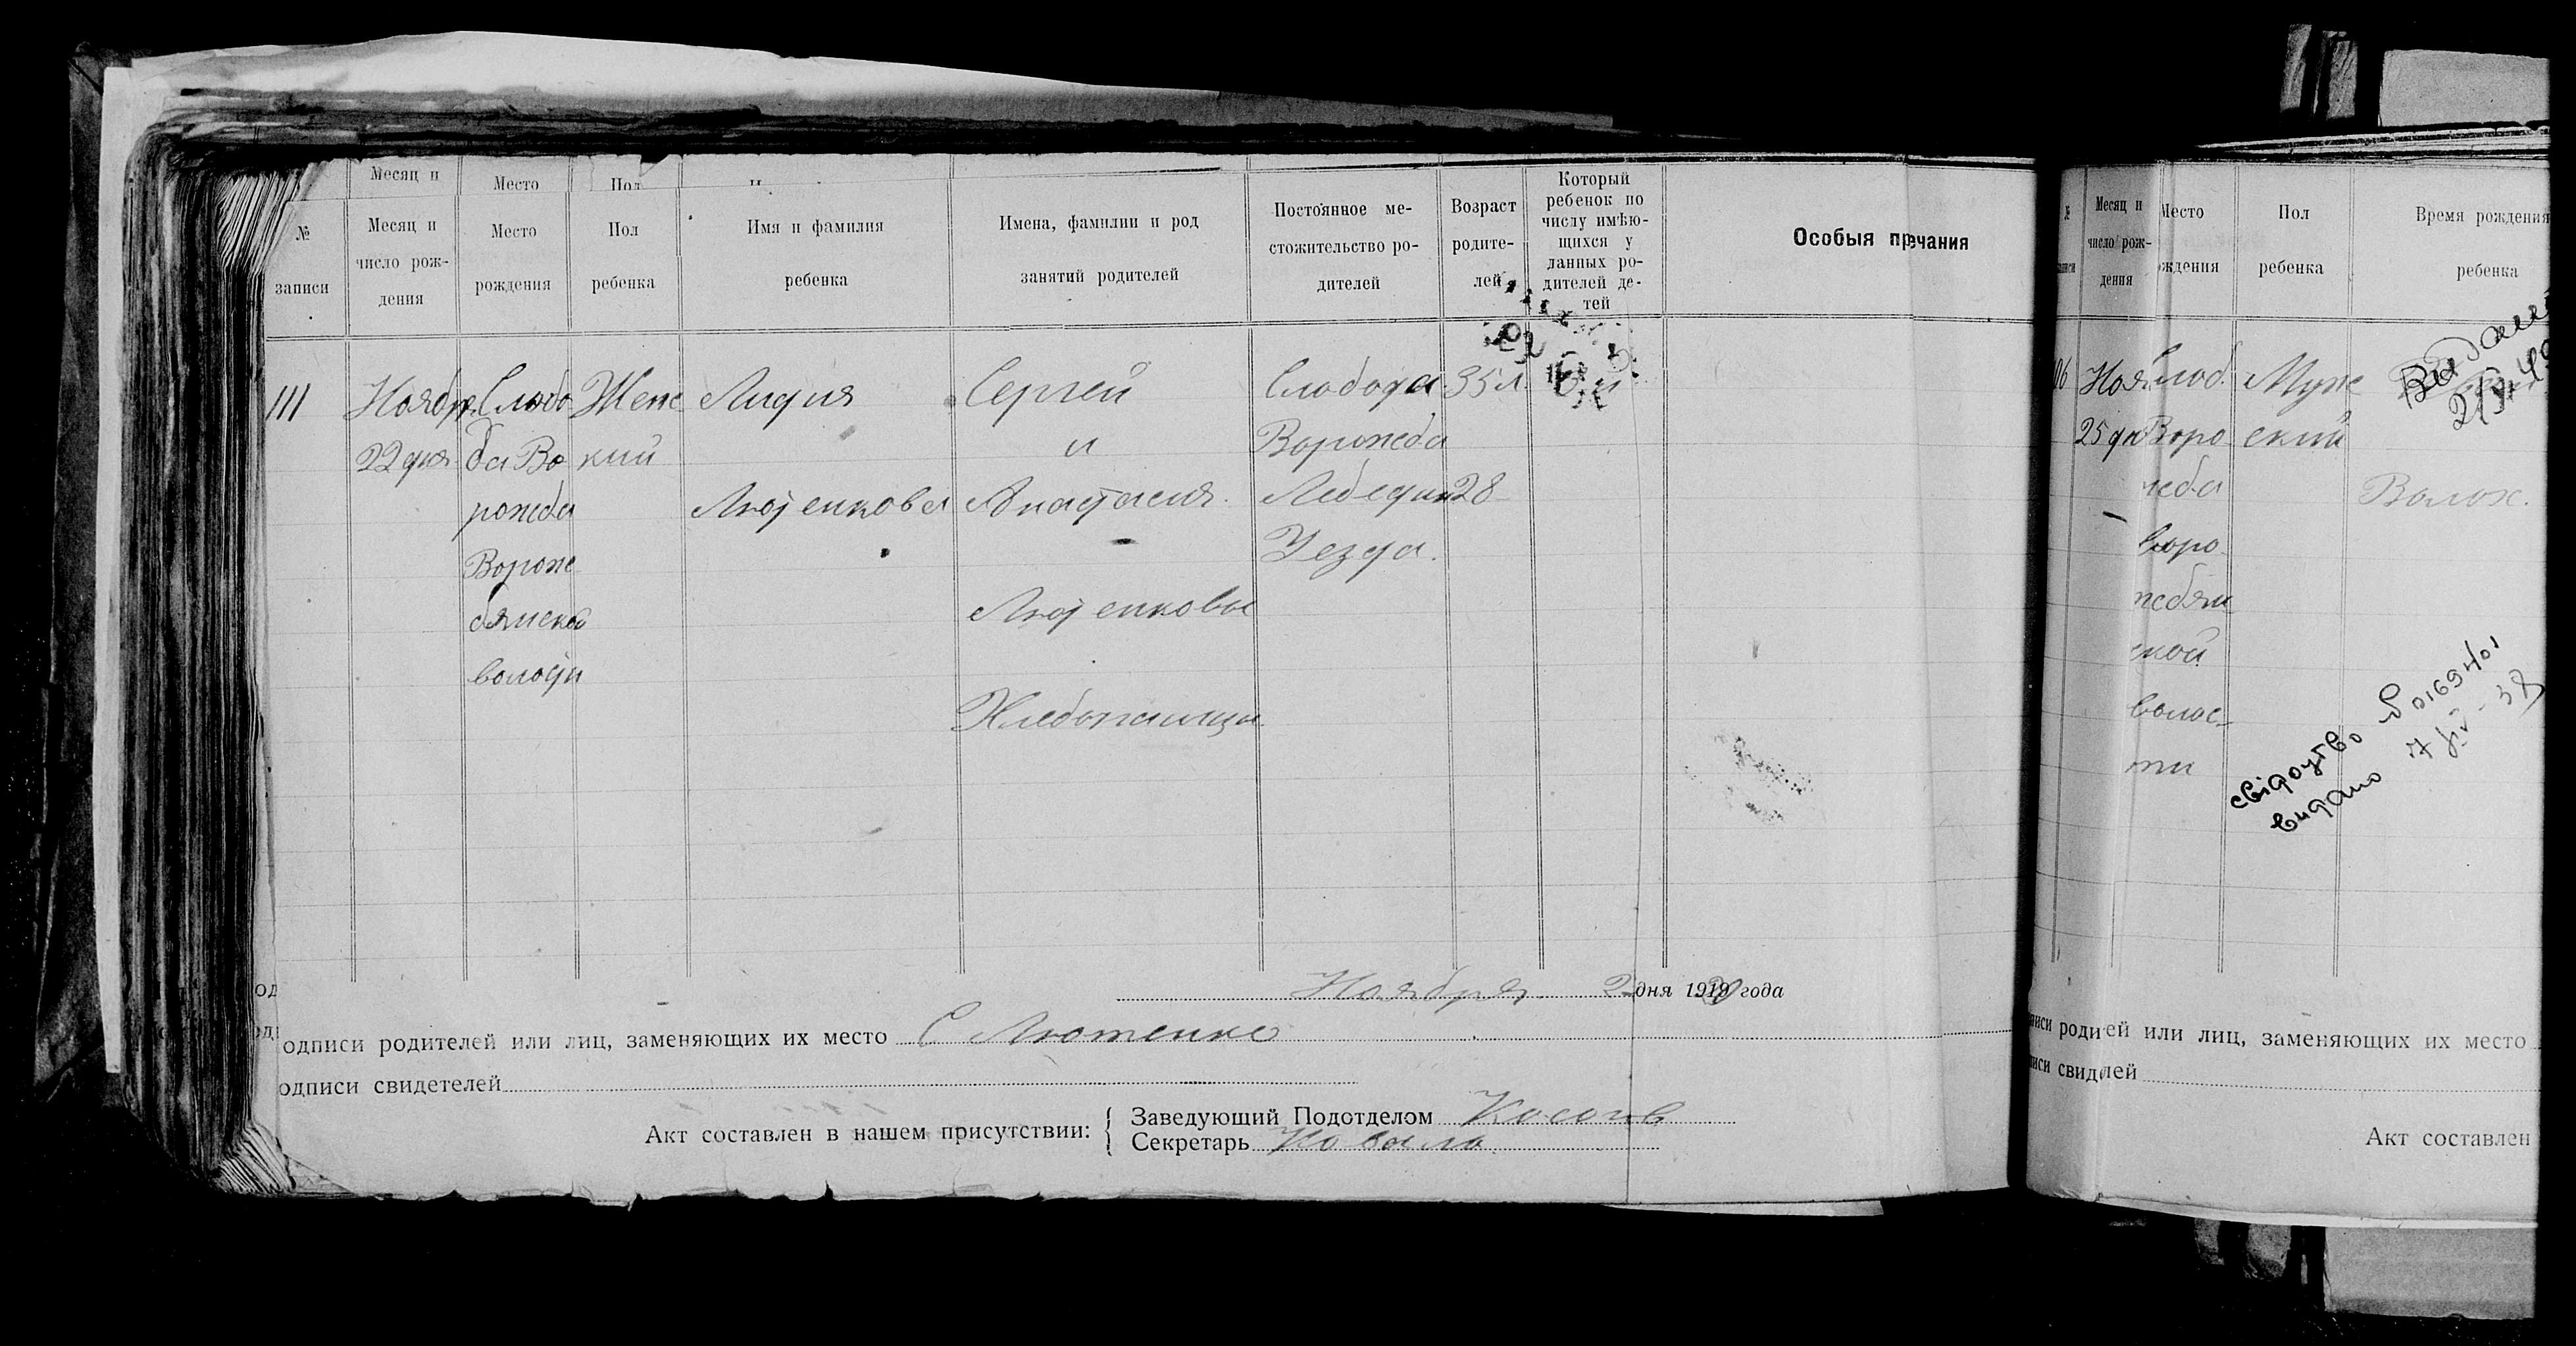 Месяц и
Место
Пол
№
записи
Месяц и
число рож-
дения
Место
рождения
Пол
ребенка
Имя и фамилия
ребенка
Имена, фамилии и род
занятий родителей
Постоянное ме-
стожительство ро-
дителей
Возраст
родите-
лей
Который
ребенок по
числу имѣю-
щихся у
данных ро-
дителей де-
тей
Особыя пречания
111
Ноября
22 дня
Слобо
да Во
рожба
Вороже
бянской
волости
Женс
кий
Лидия
Лютенкова
Сергей
и
Анастасия
Лютенковы
Хлебопашцы
Слобода
Ворожба
Лебедин
Уезда.
35 л.
28
Ноября 2 дня 1919 года
одписи родителей или лиц, заменяющих их место С Лютенко
одписи свидетелей
Акт составлен в нашем присутствии:
Заведующий Подотделом
Секретарь Ковало
№
Месяц и
число рож-
дения
Место
ождения
Пол
ребенка
Время рождения
ребенка
06
Ноя
25 дн
Слоб.
Воро
жба
Воро
жбян
ской
волос-
ти
Муже
ский
Волох.
свідоцтво
видано
родией или лиц, заменяющих их место
Акт составлен